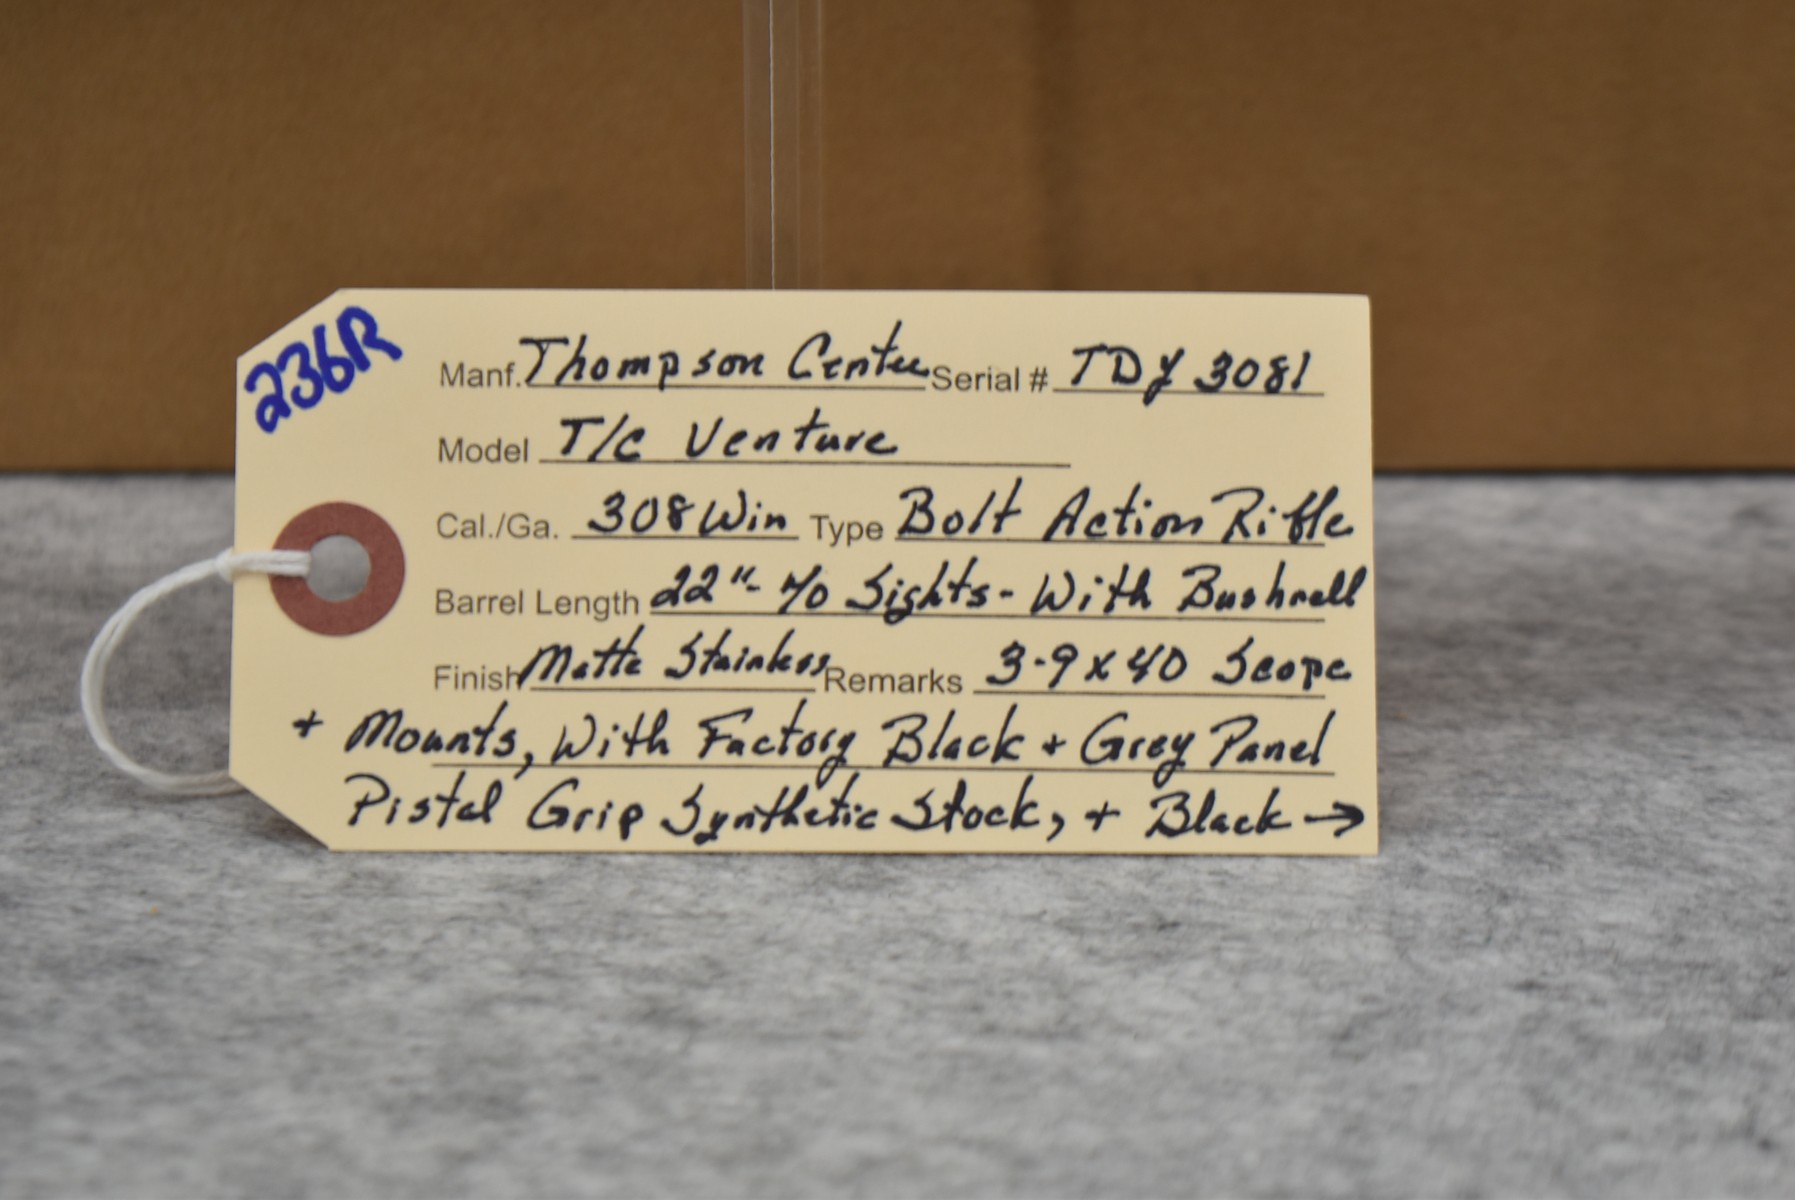 236R
Manf. Thompson Center Serial # TDY 3081
Model T/C Venture
Cal./Ga. 308 Win Type Bolt Action Rifle
Barrel Length 22"- W/O Sights - With Bushnell
Finish Matte Stainless Remarks 3-9x40 Scope
+ Mounts, With Factory Black + Grey Panel
Pistol Grip Synthetic Stock, + Black →